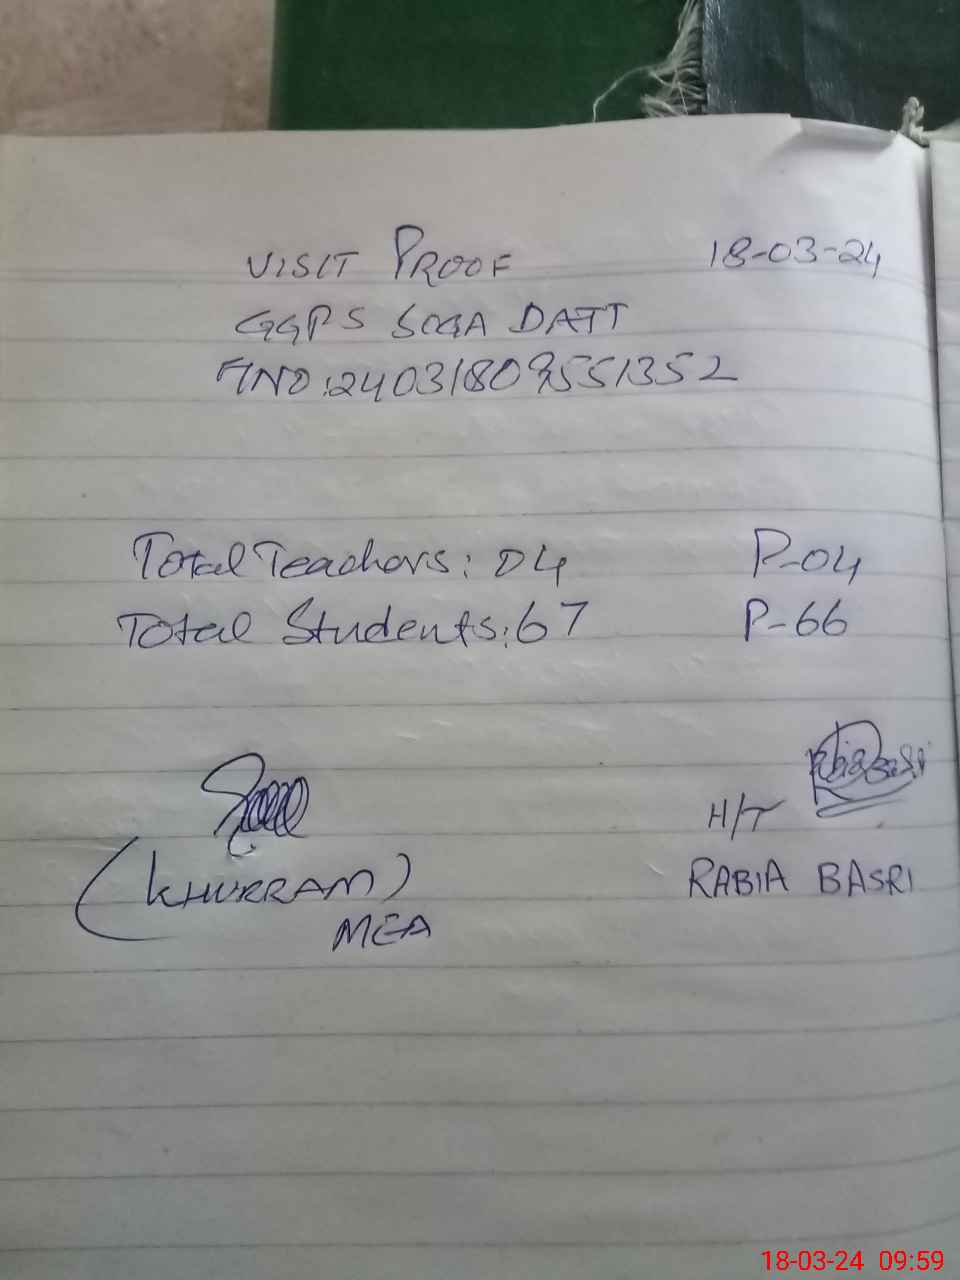 VISIT PROOF 18-03-24
GGPS SOGA DATT
FNO:24031809551352
Total Teachers: 04 P-04
Total Students: 67 P-66
H/T
(KHURRAM) RABIA BASRI
MEA
18-03-24 09:59